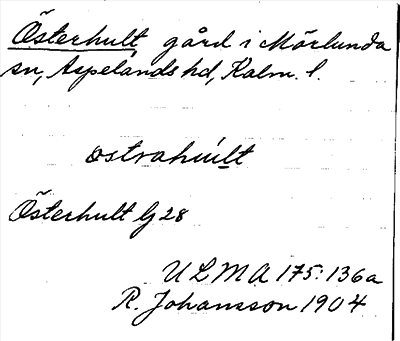 Österhult, gård i Mörlunda
sn, Aspelands hd, Kalm. l.
ostrahúlt
Österhult Gj 28
ULMA 175:136a
R. Johansson 1904